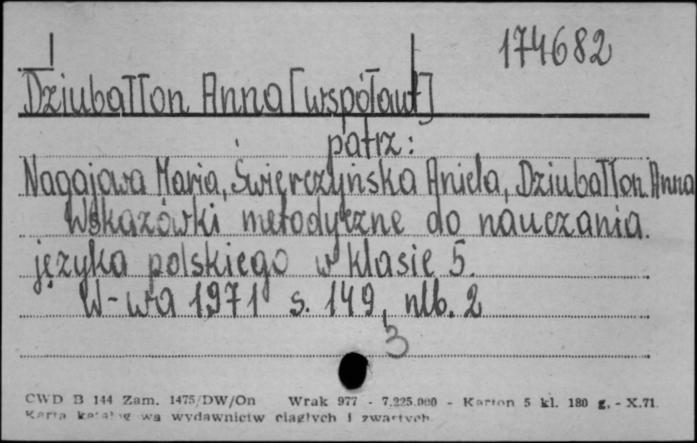 174682
Dziubałłon Anna [współaut]
patrz:
Nagajowa Maria, Święrczyńska Aniela, Dziubałłon Anna
Wskazówki metodyczne do nauczania
języka polskiego w klasie 5.
W-wa 1971 s. 149, nlb. 2
3
CWD B 144 Zam. 1475/DW/On Wrak 977 - 7.225.000 - Karton 5 kl. 180 g. - X.71.
Karta katalog wa wydawnictw ciągłych i zwartych